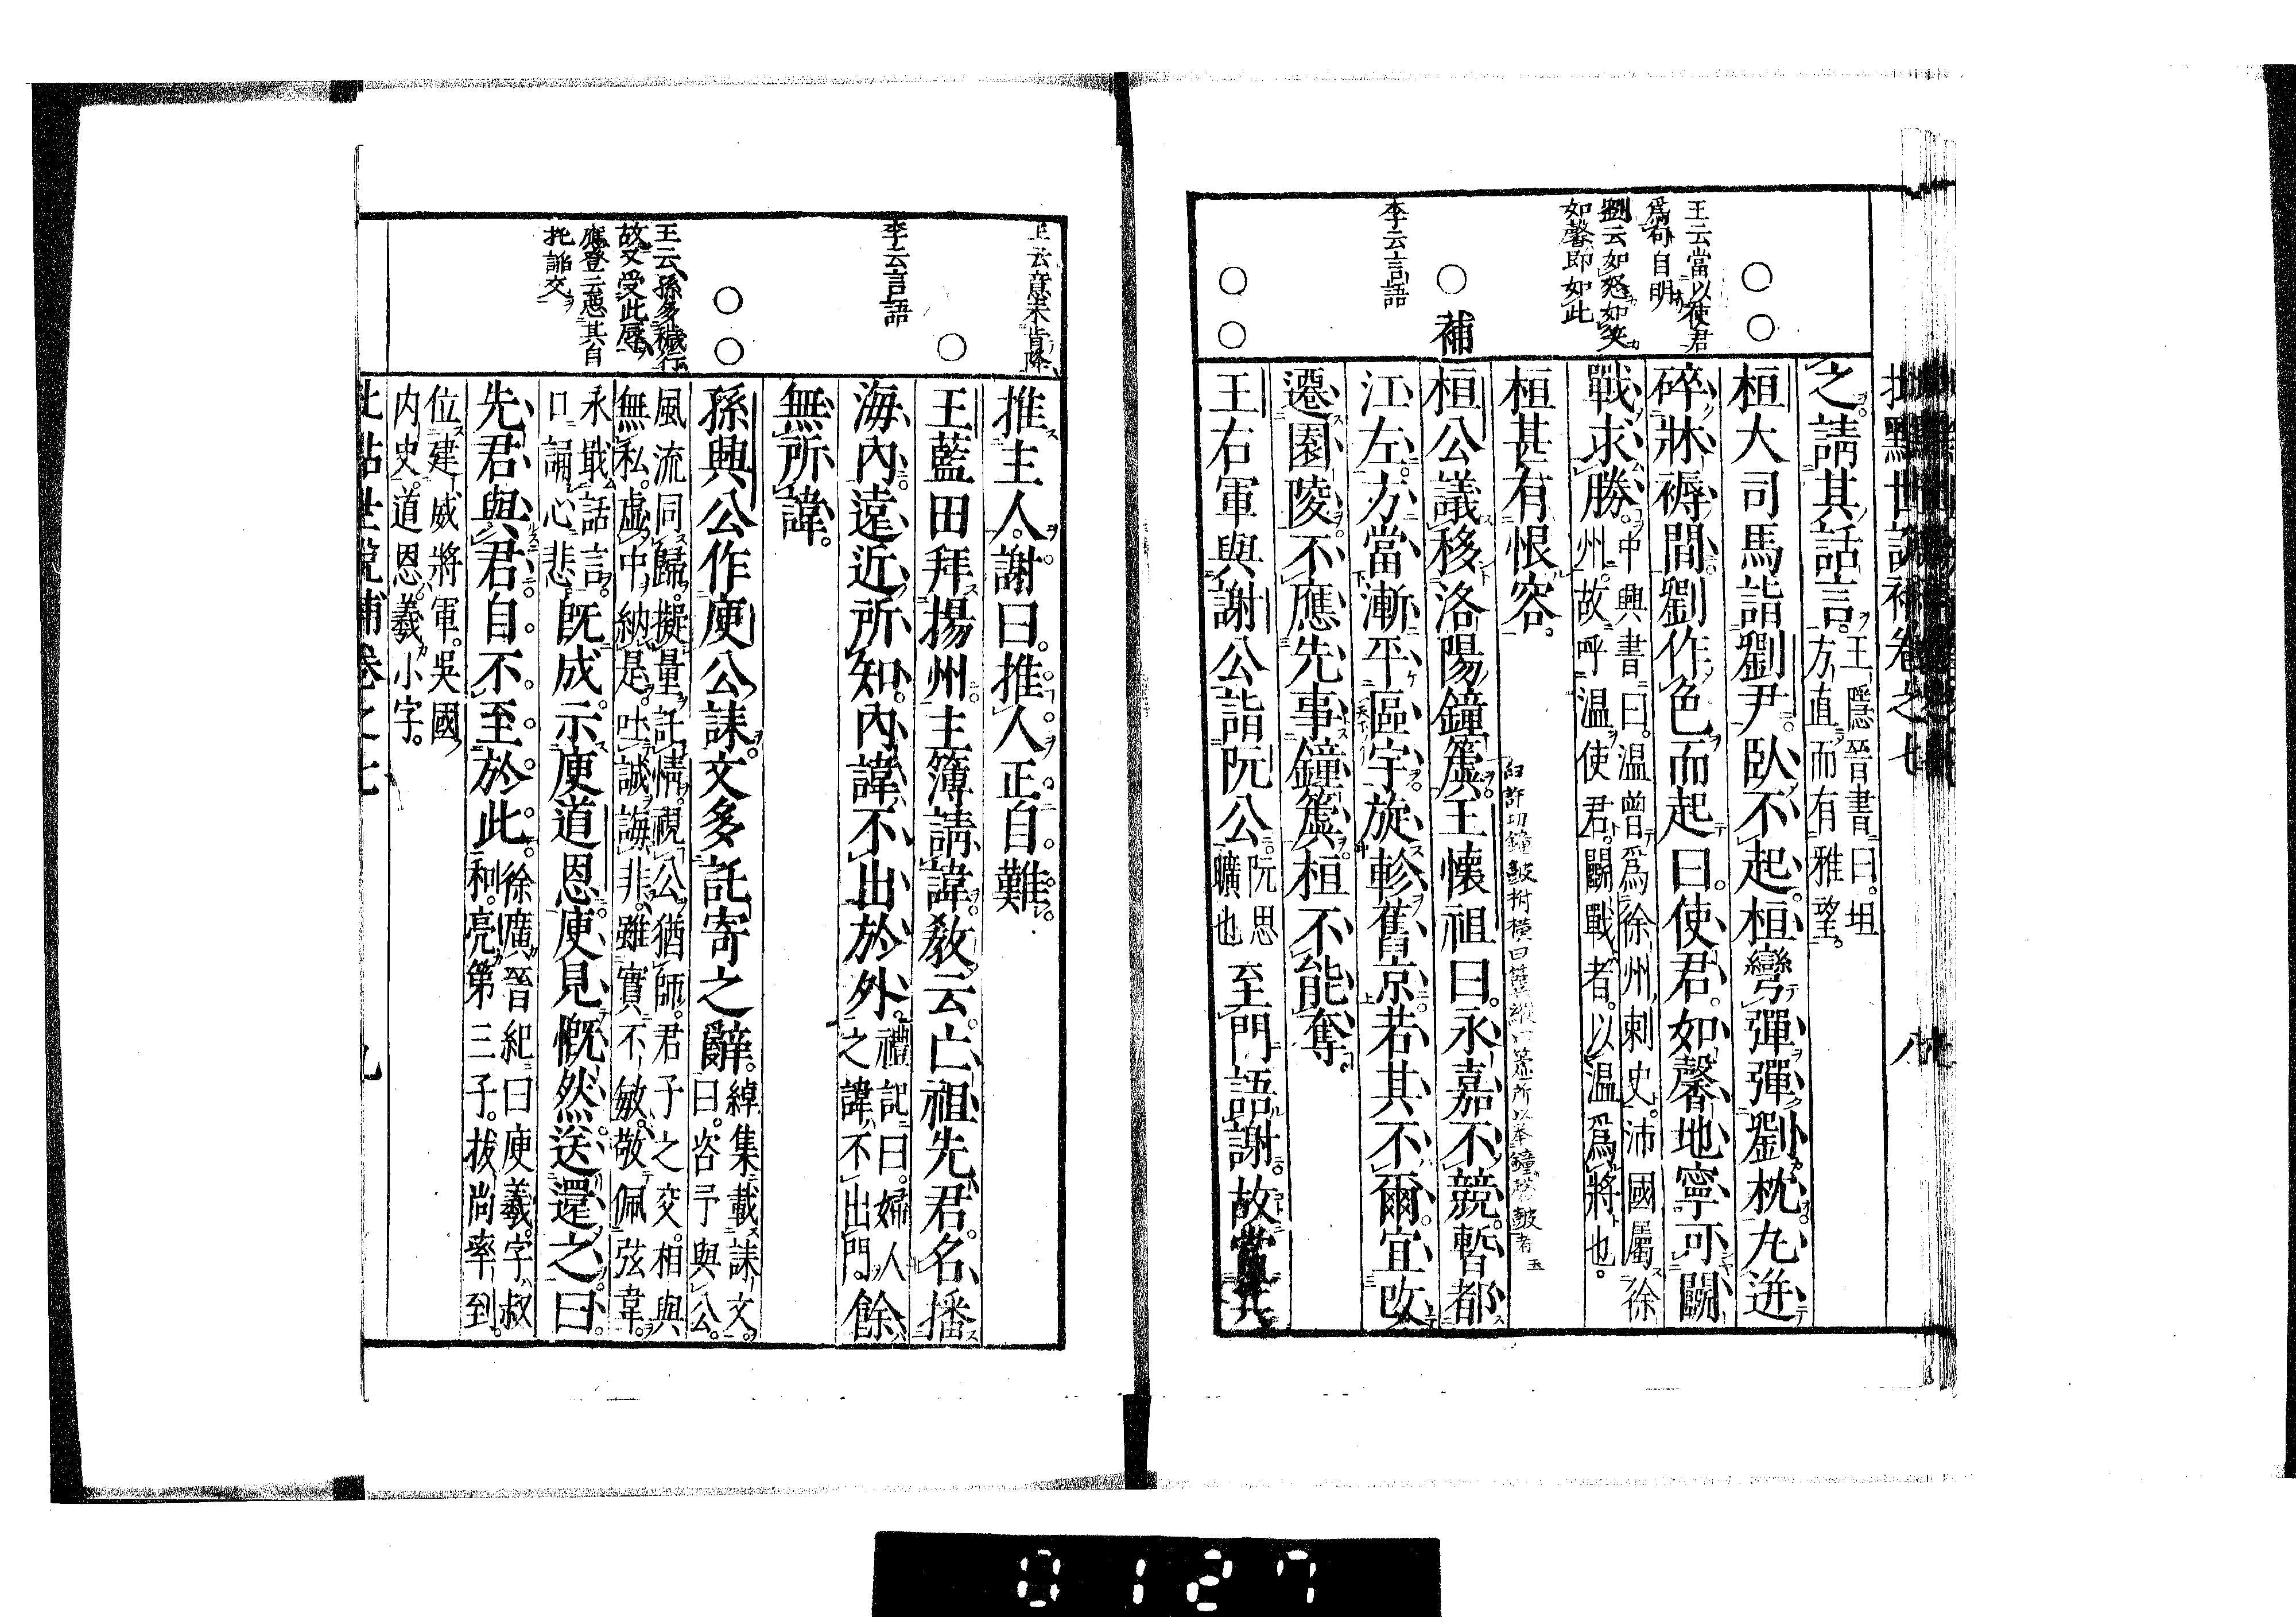 批點世說補卷之七
王云當以使君
爲句自明
劉云如怒如笑
如馨即如此
李云言語
補
之。請其話言。王隱晉書曰。坦
方直而有雅望。
桓大司馬詣劉尹。臥不起。桓彎彈彈劉枕。丸迸
碎牀褥間。劉作色而起曰。使君。如馨地寧可鬬
戰求勝。中興書曰。温曾爲徐州刺史。沛國屬徐
州。故呼温使君。鬬戰者。以温爲將也。
桓甚有恨容。
桓公議移洛陽鐘簴。王懷祖曰。永嘉不競。暫都
江左。方當漸平區宇。旋軫舊京。若其不爾。宜改
遷園陵。不應先事鐘簴。桓不能奪。
王右軍與謝公詣阮公。阮思
曠也
至門語謝。故當共
王云意未肯降
李云言語
王云孫多穢行
故又受此辱
應登云惡其自
托諂交
推主人。謝曰。推人正自難。
王藍田拜揚州。主簿請諱。教云。亡祖先君。名播
海內。遠近所知。內諱不出於外。禮記曰。婦人
之諱不出門。
餘
無所諱。
孫興公作庾公誄。文多託寄之辭。綽集載誄文。
曰。咨予與公。
風流同歸。擬量託情。視公猶師。君子之交。相與
無私。虛中納是。吐誠誨非。雖實不敏。敬佩弦韋。
永戢話言。
口誦心悲。
既成。示庾道恩。庾見慨然送還之曰。
先君與君。自不至於此。徐廣晉紀曰。庾羲。字叔
和。亮第三子。拔尚率到。
位建威將軍。吳國
內史。道恩。羲小字。
批點世說補卷之七
九
0127